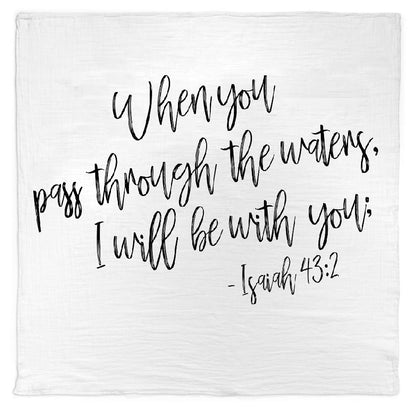 When you
pass through the waters,
I will be with you;
- Isaiah 43:2